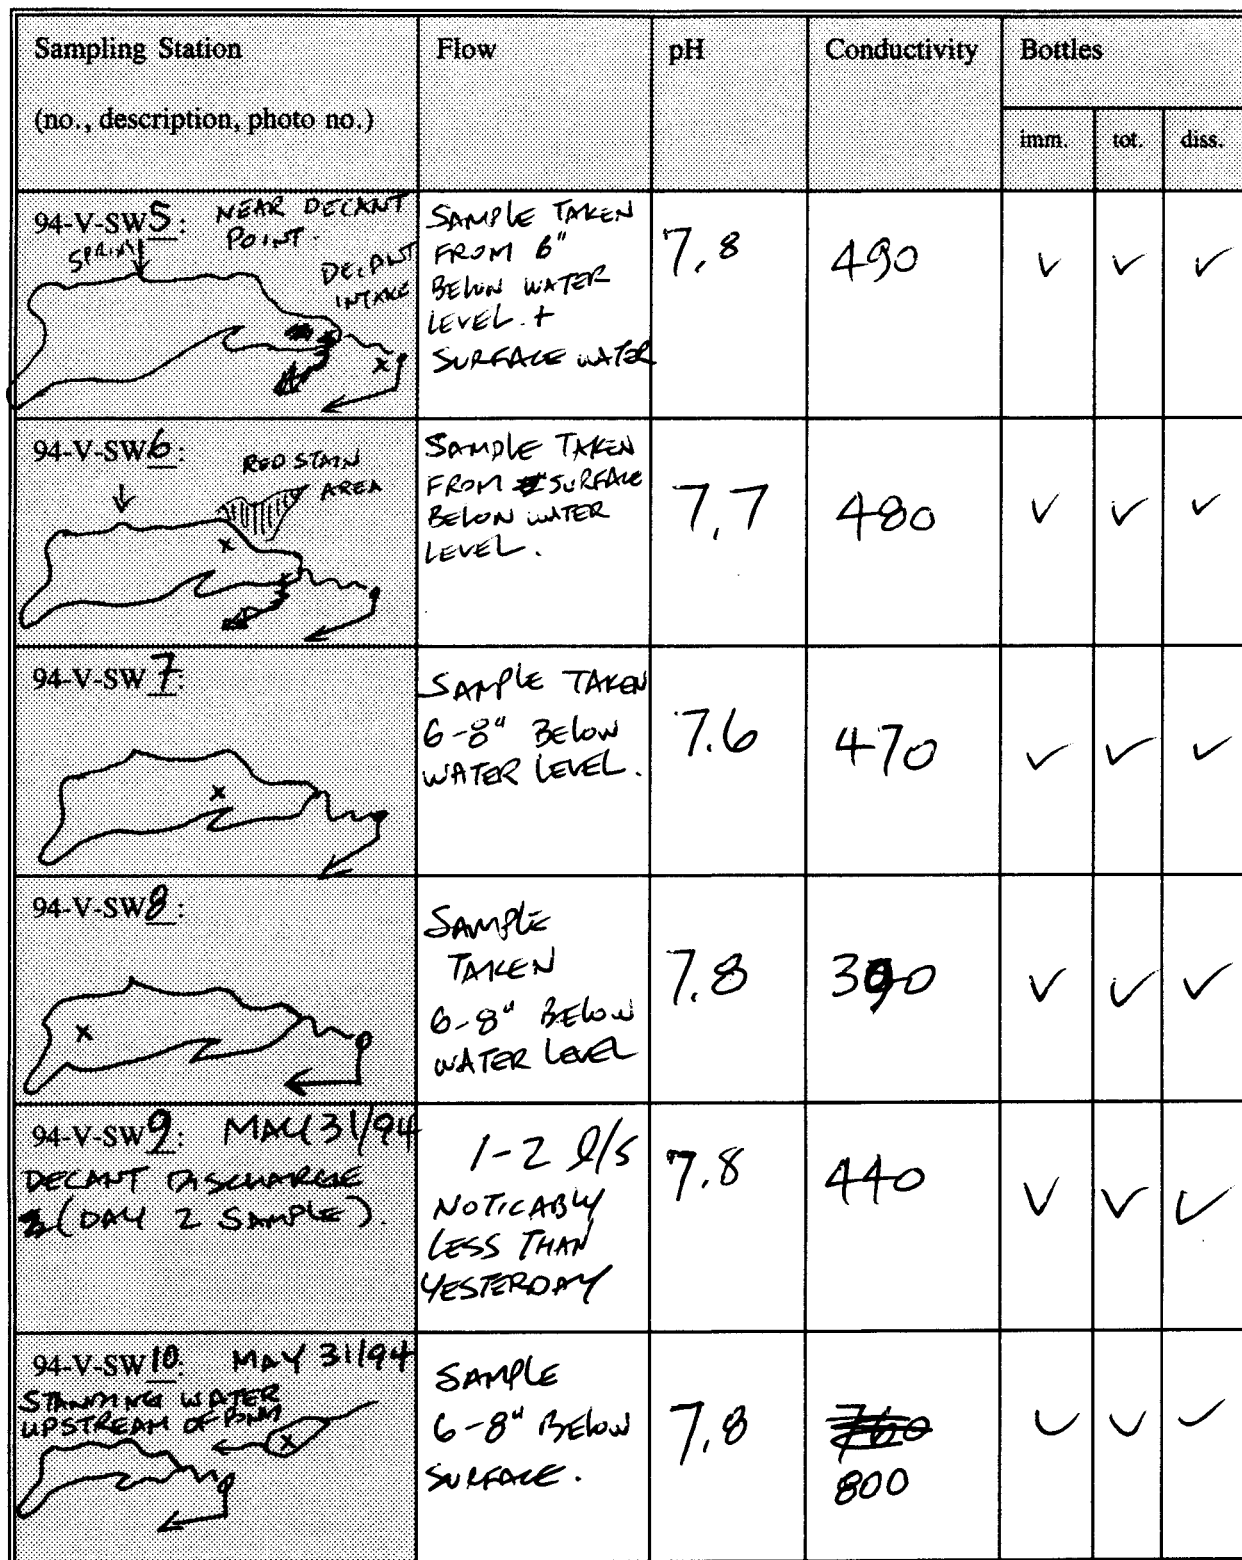 Sampling Station
(no., description, photo no.)
Flow
pH
Conductivity
Bottles
imm.
tot.
diss.
94-V-SW5: NEAR DECANT
POINT.
SPRING
DECANT
INTAKE
SAMPLE TAKEN
FROM 6"
BELOW WATER
LEVEL. +
SURFACE WATER
7.8
490
✓ ✓ ✓
94-V-SW6:
RED STAIN
AREA
SAMPLE TAKEN
FROM SURFACE
BELOW WATER
LEVEL.
7.7
480
✓ ✓ ✓
94-V-SW7:
SAMPLE TAKEN
6-8" BELOW
WATER LEVEL.
7.6
470
✓ ✓ ✓
94-V-SW8:
SAMPLE
TAKEN
6-8" BELOW
WATER LEVEL
7.8
390
✓ ✓ ✓
94-V-SW9: MAY 31/94
DECANT DISCHARGE
(DAY 2 SAMPLE).
1-2 l/s
NOTICABLY
LESS THAN
YESTERDAY
7.8
440
✓ ✓ ✓
94-V-SW10: MAY 31/94
STANDING WATER
UPSTREAM OF
SAMPLE
6-8" BELOW
SURFACE.
7.8
760
800
✓ ✓ ✓